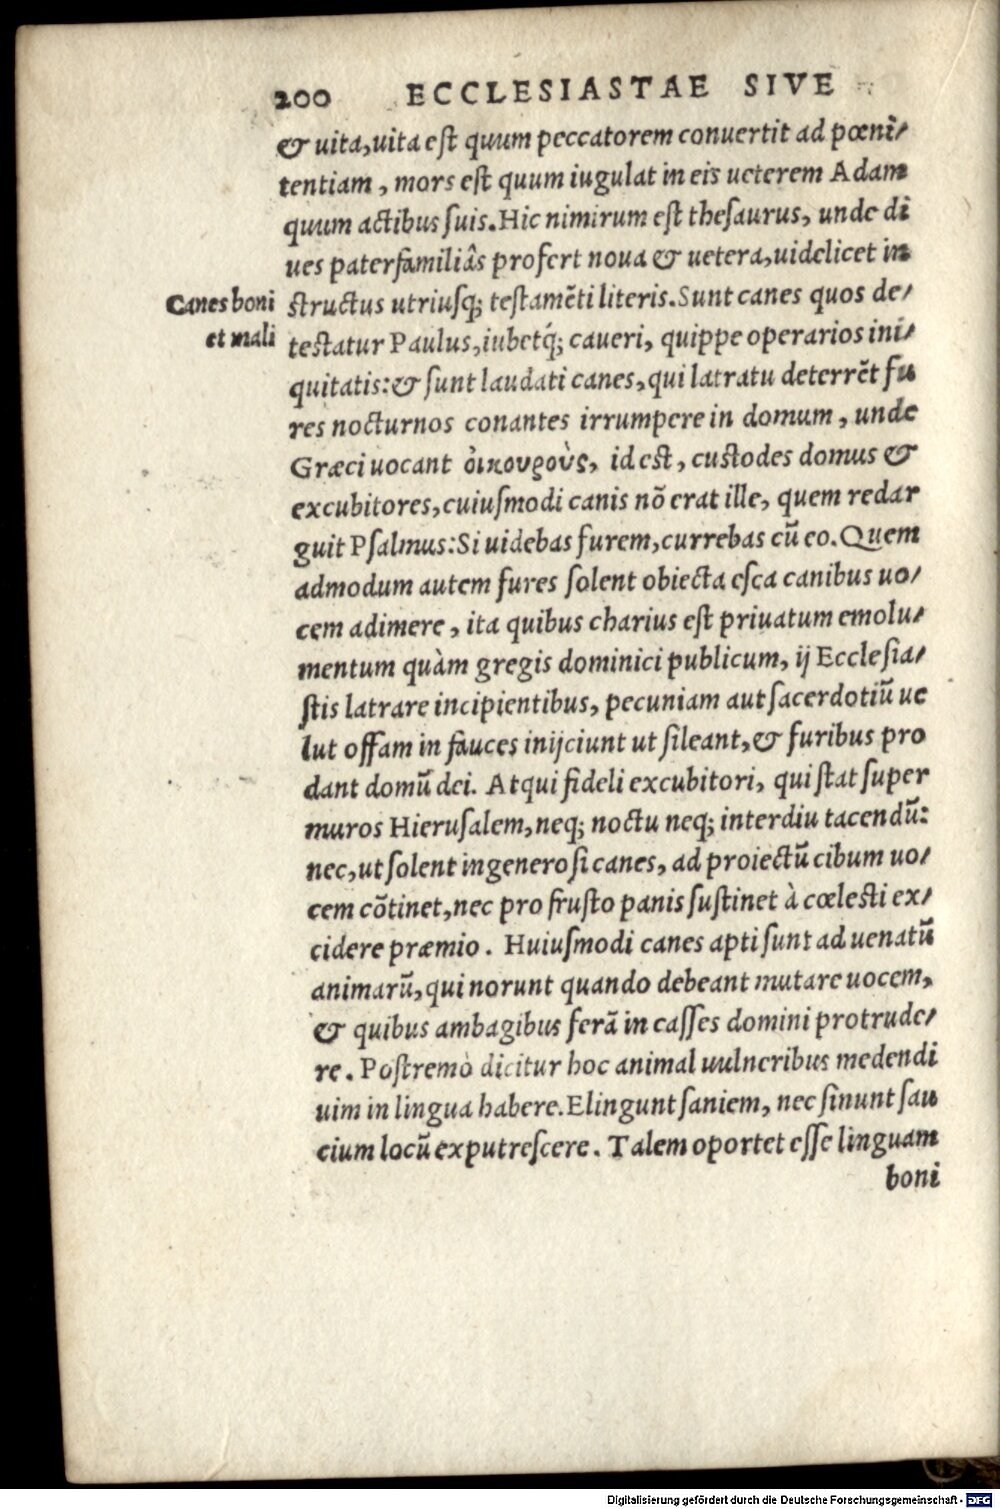 200 ECCLESIASTAE SIVE
& uita, uita est quum peccatorem conuertit ad pœni/
tentiam, mors est quum iugulat in eis ueterem Adam
quum actibus suis. Hic nimirum est thesaurus, unde di
ues paterfamiliâs profert noua & uetera, uidelicet in
Canes boni
et mali
structus utriusq; testamẽti literis. Sunt canes quos de/
testatur Paulus, iubetq́; caueri, quippe operarios ini/
quitatis: & sunt laudati canes, qui latratu deterrẽt fu
res nocturnos conantes irrumpere in domum, unde
Græci uocant ὀικουροὺς, id est, custodes domus &
excubitores, cuiusmodi canis nõ erat ille, quem redar
guit Psalmus: Si uidebas furem, currebas cũ eo. Quem
admodum autem fures solent obiecta esca canibus uo/
cem adimere, ita quibus charius est priuatum emolu/
mentum quàm gregis dominici publicum, ij Ecclesia/
stis latrare incipientibus, pecuniam aut sacerdotiũ ue
lut offam in fauces inijciunt ut sileant, & furibus pro
dant domũ dei. Atqui fideli excubitori, qui stat super
muros Hierusalem, neq; noctu neq; interdiu tacendũ:
nec, ut solent ingenerosi canes, ad proiectũ cibum uo/
cem cõtinet, nec pro frusto panis sustinet à cœlesti ex/
cidere præmio. Huiusmodi canes apti sunt ad uenatũ
animarũ, qui norunt quando debeant mutare uocem,
& quibus ambagibus ferã in casses domini protrude/
re. Postremò dicitur hoc animal uulneribus medendi
uim in lingua habere. Elingunt saniem, nec sinunt sau
cium locũ exputrescere. Talem oportet esse linguam
boni
Digitalisierung gefördert durch die Deutsche Forschungsgemeinschaft - DFG